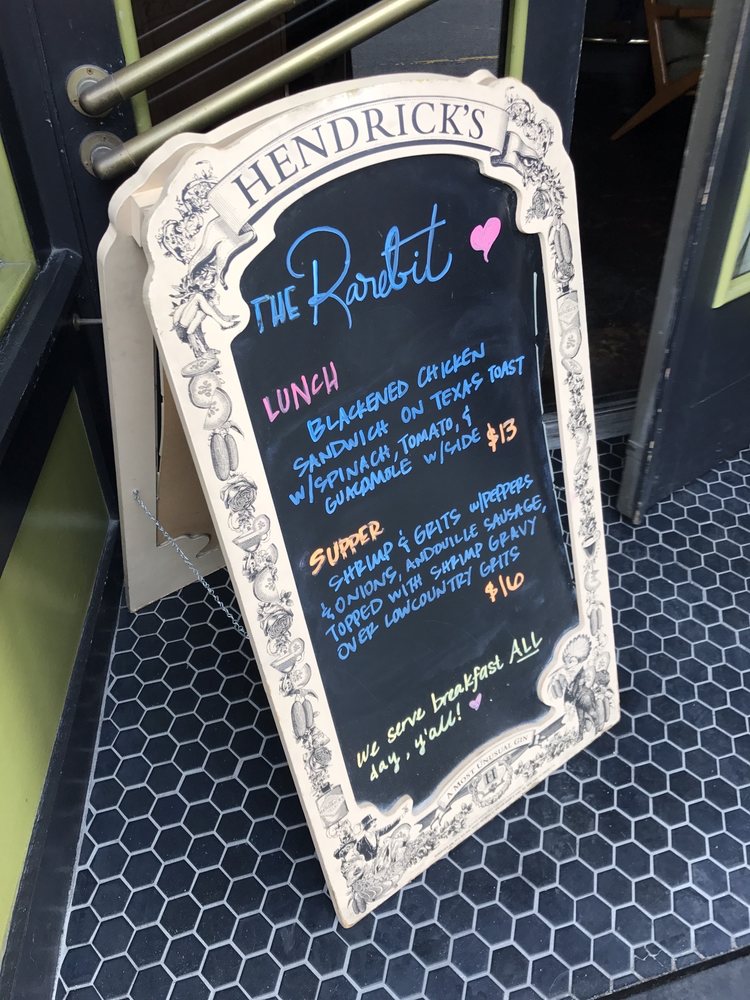 HENDRICK'S
THE Rarebit
LUNCH
BLACKENED CHICKEN
SANDWICH ON TEXAS TOAST
W/SPINACH, TOMATO, &
GUACAMOLE W/SIDE $13
SUPPER
SHRIMP & GRITS W/PEPPERS
& ONIONS, ANDOUILLE SAUSAGE,
TOPPED WITH SHRIMP GRAVY
OVER LOWCOUNTRY GRITS
$16
We serve breakfast ALL
day, y'all!
A MOST UNUSUAL GIN
H